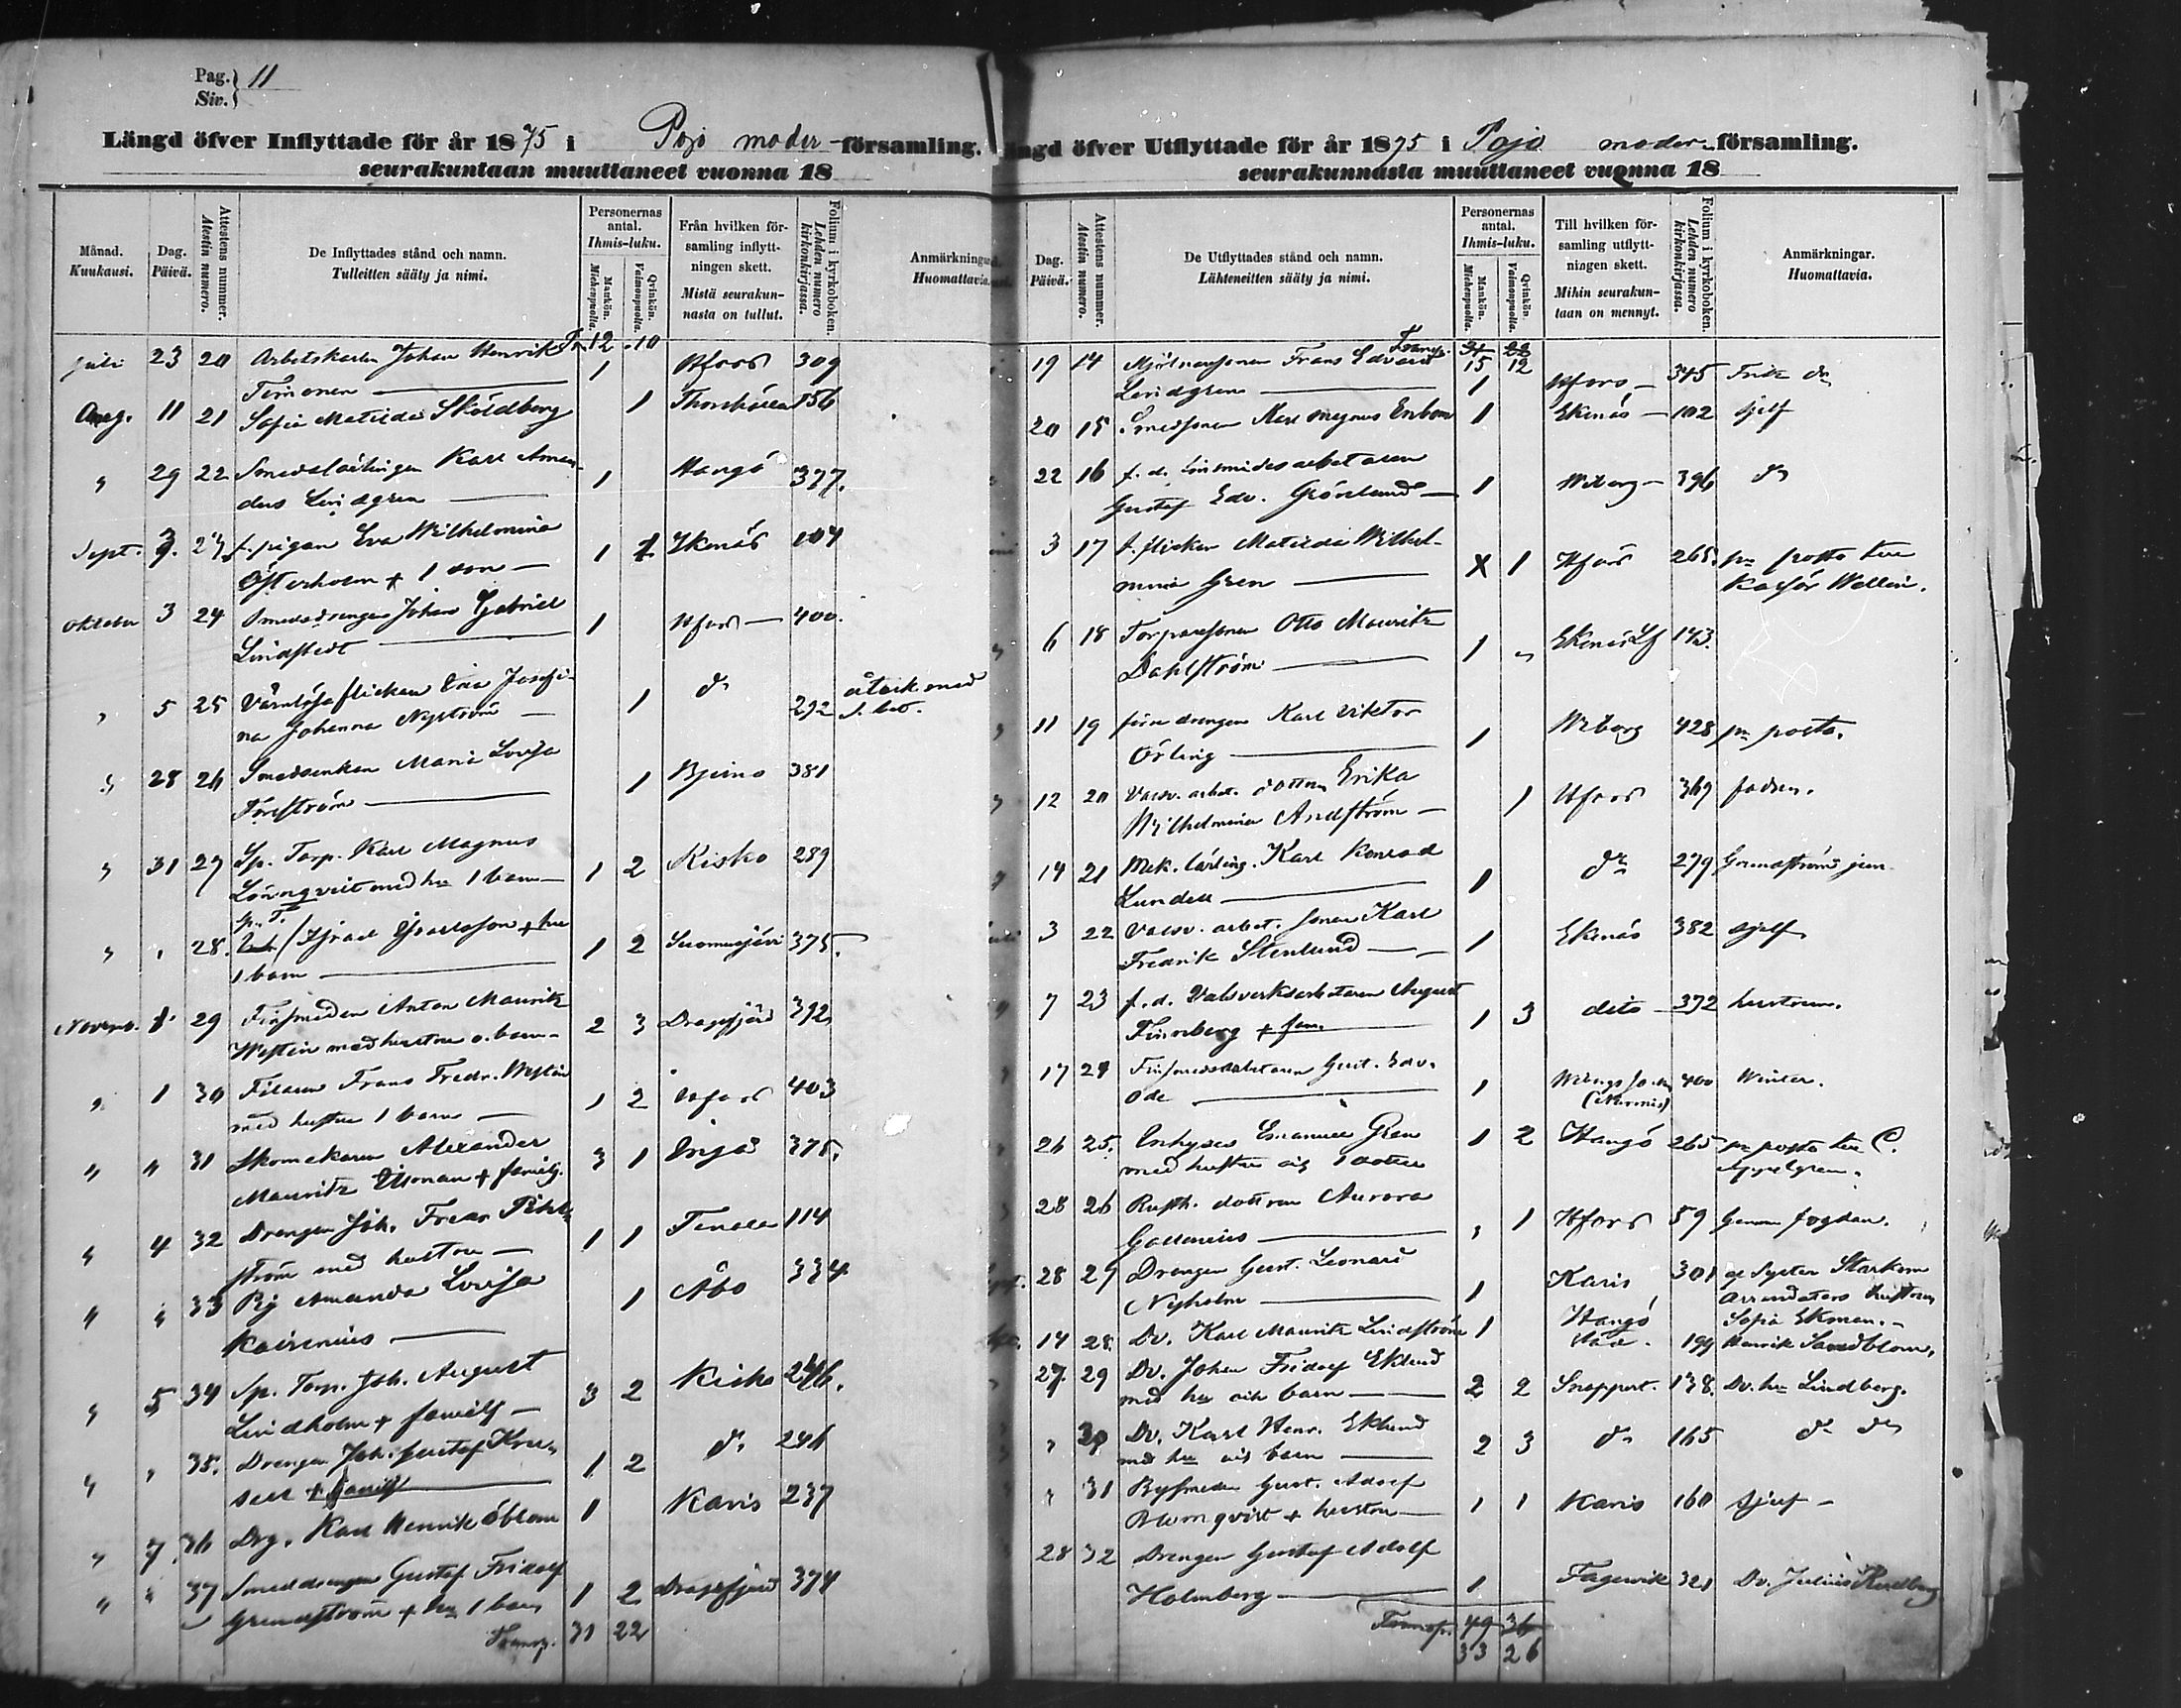 Pag. 11
Siv.
Längd öfver Inflyttade för år 1875 i Pojo moder-församling.
seurakuntaan muuttaneet vuonna 18
Månad.
Kuukausi.
Dag.
Päivä.
Attestens nummer.
Atestin numero.
De Inflyttades stånd och namn.
Tulleitten sääty ja nimi.
Personernas antal.
Ihmis-luku.
Mankön.
Miehenpuolia.
Qvinkön.
Vaimonpuolia.
Från hvilken för-
samling inflytt-
ningen skett.
Mistä seurakun-
nasta on tullut.
Folium i kyrkoboken.
Lehden numero
kirkonkirjassa.
Anmärkningar
Huomattavia.
12 10
Juli 23 20 Arbetskarlen Johan Henrik
Timonen 1 Hfors 309
Aug. 11 21 Sofia Matilda Sköldberg 1 156
" 29 22 Smedslärlingen Karl Aman-
dus Lindgren 1 Hangö 377.
Sept. f. pigan Eva Wilhelmina
Österholm + 1 son 1 Ekenäs 104
Oktober 3 24 Smedsdrengen Johan Gabriel
Lindstedt 1 Hfors 400.
" 5 25 Värnlösa flickan Eva Josefi-
na Johanna Nyström 1 do 292
" 28 26 Smedsenkan Maria Lovisa
Forsström 1 Bjerno 381
" 31 27 Sp. Torp. Karl Magnus
Lönnqvist med hu 1 barn 1 2 Kisko 289
" " 28. Sp. T. hu
1 barn 1 2 Suomusjärvi 375.
Novemb. 1 29 Finsmeden Anton Mauritz
Westin med hustru o. barn 2 3 Dragsfjärd 392
" 1 30 Filaren Frans Fredr. Westin
med hustru 1 barn 1 2 Hfors 403
" " 31 Skomakaren Alexander
Mauritz + familj. 3 1 Ingå 375.
" 4 32 Drengen Joh. Fredr.
ström med hustru 1 1 Tenala 114
" " 33 Pig Amanda Lovisa
1 Åbo 334
" 5 34 Sp. Torp. Joh. August
Lindholm + familj 3 2 Kisko 246.
" " 35. Drengen Joh. Gustaf
+ familj 1 2 do 246
" 7. 36 Drg. Karl Henrik Öblom 1 Karis 237
" " 37 Smeddrengen Gustaf Fridolf
Grundström + hu 1 barn 1 2 Dragsfjärd 374
Transp. 31 22
Längd öfver Utflyttade för år 1875 i Pojo moder-församling.
seurakunnasta muuttaneet vuonna 18
Dag.
Päivä.
Attestens nummer.
Atestin numero.
De Utflyttades stånd och namn.
Lähteneitten sääty ja nimi.
Personernas antal.
Ihmis-luku.
Mankön.
Miehenpuolia.
Qvinkön.
Vaimonpuolia.
Till hvilken för-
samling utflytt-
ningen skett.
Mihin seurakun-
taan on mennyt.
Folium i kyrkoboken.
Lehden numero
kirkonkirjassa.
Anmärkningar.
Huomattavia.
Transp. 15 12
19 14 Mjölnaresonen Frans Edvard
Lindgren 1 Hfors 345
20 15 Smedsonen Karl Magnus Enbom 1 Ekenäs 102 sjelf
22 16 f. d. Finsmidesarbetaren
Gustaf Edv. Grönlund 1 Wiborg 396 do
3 17 f. flickan Matilda Wilhel-
mina Gren X 1 Hfors 265. pr posto
6 18 Torparesonen Otto Mauritz
Dahlström 1 " Ekenäs Lf 143.
11 19 förre drengen Karl Viktor
Örling 1 Wiborg 428 pr posto.
12 20 Valsv. arbet. dottern Erika
Wilhelmina 1 Hfors 369 fadren.
14 21 Mek. lärling. Karl Konrad
Lundell 1 do 279 Grundström jun.
3 22 Valsv. arbet. sonen Karl
Fredrik Stenlund 1 Ekenäs 382 sjelf
7 23 f. d. Valsverksarbetaren August
Finnberg + fam. 1 3 dito 372 hustrun.
17 24 Finsmedsarbetaren Gust. Edv.
Ode 1 400 Winter.
26 25. Inhyses Emanuel Gren
med hustru och 1 dotter 1 2 Hangö 265 pr posto till C.
Appelgren.
28 26 Rusth. dottren Aurora
Gallenius " 1 Hfors 59 Genom fogden.
28 27 Drengen Gust. Leonard
Nyholm 1 Karis 301 af Syster
Arrendators hustrun
Sofia Ekman.
14 28. Dr. Karl Mauritz Lindström 1 Hangö
stad. 199 Henrik Sandblom.
27 29 Dr. Johan Fridolf Eklund
med hu och barn 2 2 Snappert. 138. Dr. hu Lindberg.
" 30 Dr. Karl Henr. Eklund
med hu och barn 2 3 do 165 do do
" 31 Bysmeden Gust. Adolf
Blomqvist + hustru 1 1 Karis 160 sjelf
28 32 Drengen Gustaf Adolf
Holmberg 1 Fagervik 321 Dr. Julius
Transp. 49 36
33 26